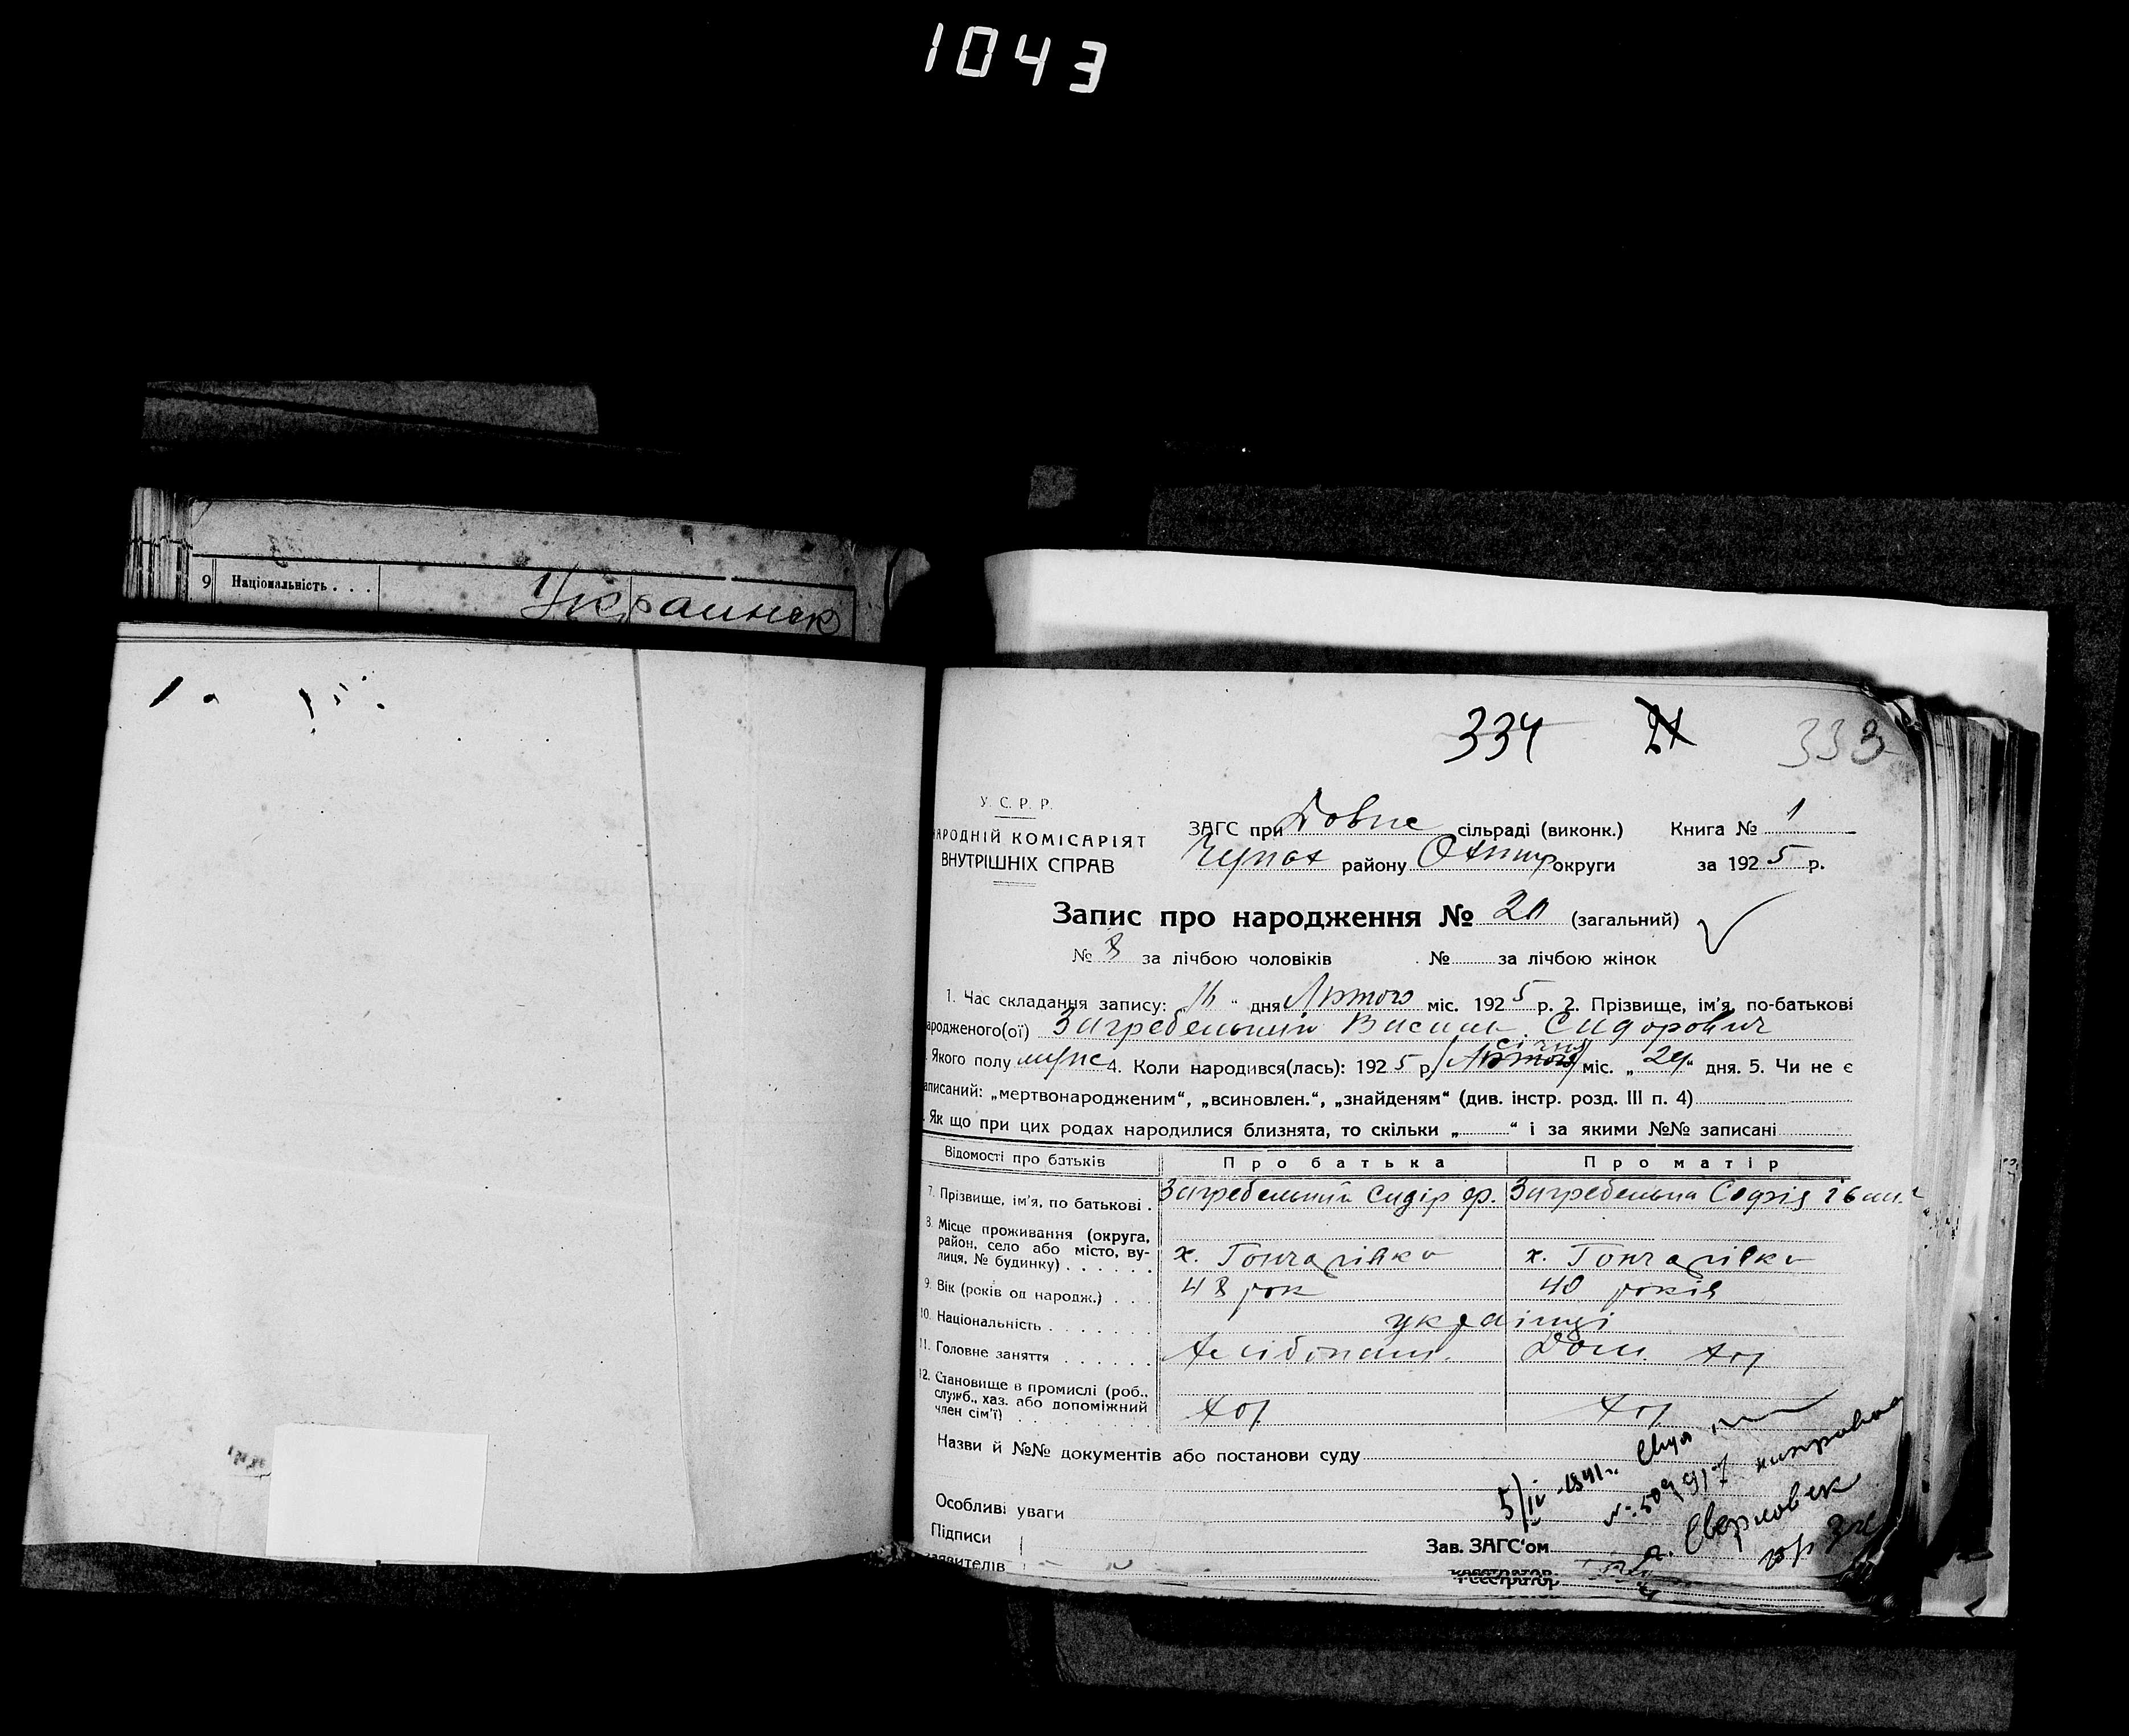 1043
9 Національність . . . Украинск
334 21 333
У. С. Р. Р.
НАРОДНІЙ КОМІСАРІЯТ
ВНУТРІШНІХ СПРАВ
ЗАГС при Довже сільраді (виконк.) Книга № 1
Чупах району Охтир округи за 1925 р.
Запис про народження № 20 (загальний)
№ 8 за лічбою чоловіків № за лічбою жінок
1. Час складання запису: 16 “ дня Лютого міс. 1925 р. 2. Прізвище, ім’я, по-батькові
ародженого(ої) Загребельний Василь Сидорович
січня
Якого полу мужс 4. Коли народився(лась): 1925 р. (Лютого) міс. „29“ дня. 5. Чи не є
аписаний: „мертвонародженим“, „всиновлен.“, „знайденям“ (див. інстр. розд. III п. 4)
Як що при цих родах народилися близнята, то скільки „ “ і за якими №№ записані
Відомості про батьків Про батька Про матір
7. Прізвище, ім’я, по батькові . Загребельний Сидір Яр. Загребельна Софія Іван.
8. Місце проживання (округа,
район, село або місто, ву-
лиця, № будинку) . . . . . . х. Гончарівка х. Гончарівка
9. Вік (років од народж.) . . . 48 рок 40 років
10. Національність . . . . . . . українці
11. Головне заняття . . . . . . Хлібопаш. Дом. хоз
12. Становище в промислі (роб.,
служб., хаз. або допоміжний
член сім’ї) . . . хоз хоз
Назви й №№ документів або постанови суду
5/IV-1941г.
Особливі уваги
Підписи
аявителів
Зав. ЗАГС‘ом
Реєстратор